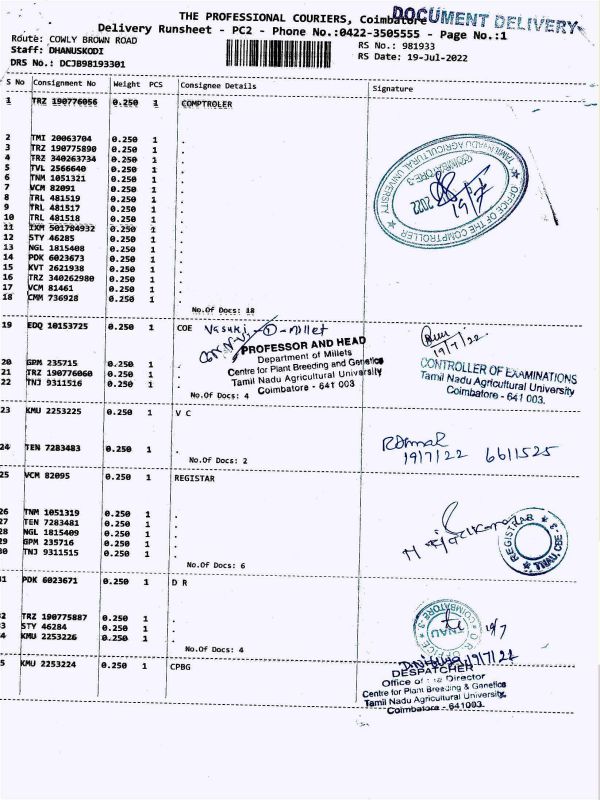 THE PROFESSIONAL COURIERS, Coimbatore
DOCUMENT DELIVERY
Delivery Runsheet - PC2 - Phone No.:0422-3505555 - Page No.:1
Route: COWLY BROWN ROAD
RS No.: 981933
Staff: DHANUSKODI
RS Date: 19-Jul-2022
DRS No.: DCJB98193301
S No Consignment No Weight PCS Consignee Details Signature
1 TRZ 190776056 0.250 1 COMPTROLER
2 TMI 20063704 0.250 1 .
3 TRZ 190775890 0.250 1 .
4 TRZ 340263734 0.250 1 .
5 TVL 2566640 0.250 1 .
6 TNM 1051321 0.250 1 .
7 VCM 82091 0.250 1 .
8 TRL 481519 0.250 1 .
9 TRL 481517 0.250 1 .
10 TRL 481518 0.250 1 .
11 IXM 501784932 0.250 1 .
12 STY 46285 0.250 1 .
13 NGL 1815408 0.250 1 .
14 PDK 6023673 0.250 1 .
15 KVT 2621938 0.250 1 .
16 TRZ 340262980 0.250 1 .
17 VCM 81461 0.250 1 .
18 CMM 736928 0.250 1 .
No.Of Docs: 18
TAMIL NADU AGRICULTURAL UNIVERSITY
COIMBATORE-3
2022
19/7
OFFICE OF THE COMPTROLLER
19 EDQ 10153725 0.250 1 COE Vasuki - 1 - Millet
19/7/22
PROFESSOR AND HEAD
Department of Millets
Centre for Plant Breeding and Genetics
Tamil Nadu Agricultural University
Coimbatore - 641 003
CONTROLLER OF EXAMINATIONS
Tamil Nadu Agricultural University
Coimbatore - 641 003.
20 GPM 235715 0.250 1 .
21 TRZ 190776060 0.250 1 .
22 TNJ 9311516 0.250 1 .
No.Of Docs: 4
23 KMU 2253225 0.250 1 V C
24 TEN 7283483 0.250 1 .
No.Of Docs: 2
19/7/22 6611525
25 VCM 82095 0.250 1 REGISTAR
26 TNM 1051319 0.250 1 .
27 TEN 7283481 0.250 1 .
28 NGL 1815409 0.250 1 .
29 GPM 235716 0.250 1 .
30 TNJ 9311515 0.250 1 .
No.Of Docs: 6
REGISTRAR
TNAU, CBE-3
31 PDK 6023671 0.250 1 D R
32 TRZ 190775887 0.250 1 .
33 STY 46284 0.250 1 .
34 KMU 2253226 0.250 1 .
No.Of Docs: 4
COIMBATORE-3
TNAU
D.R. OFFICE
19/7
35 KMU 2253224 0.250 1 CPBG
19/7/22
DESPATCHER
Office of the Director
Centre for Plant Breeding & Genetics
Tamil Nadu Agricultural University,
Coimbatore - 641003.